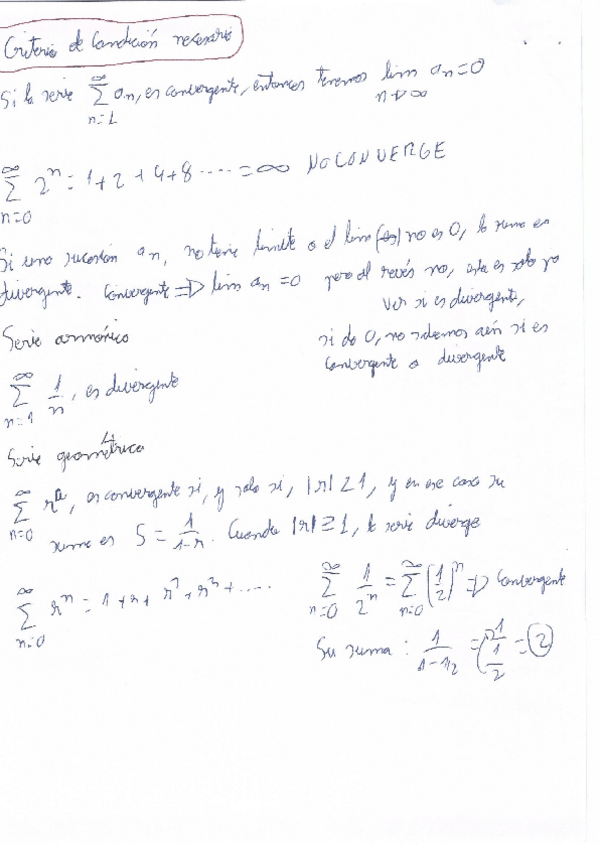 Criterio de Condición necesario
Si la serie ∞∑n=1 an, es convergente, entonces tenemos lim n→∞ an = 0
∞∑n=0 2^n = 1+2+4+8 ..... = ∞ NO CONVERGE
Si una sucesión an, no tiene limite o el lim(an) no es 0, la suma es
divergente. Convergente => lim an = 0 pero al revés no, esta es solo pa
ver si es divergente,
si da 0, no sabemos aún si es
convergente o divergente
Serie armónica
∞∑n=1 1/n, es divergente
Serie geométrica
∞∑n=0 r^n, es convergente si, y solo si, |r| < 1, y en ese caso su
suma es S = 1/(1-r). Cuando |r| ≥ 1, la serie diverge
∞∑n=0 r^n = 1 + r + r² + r³ + .....
∞∑n=0 1/2^n = ∞∑n=0 (1/2)^n => Convergente
Su suma: 1/(1-1/2) = 1/(1/2) = 2